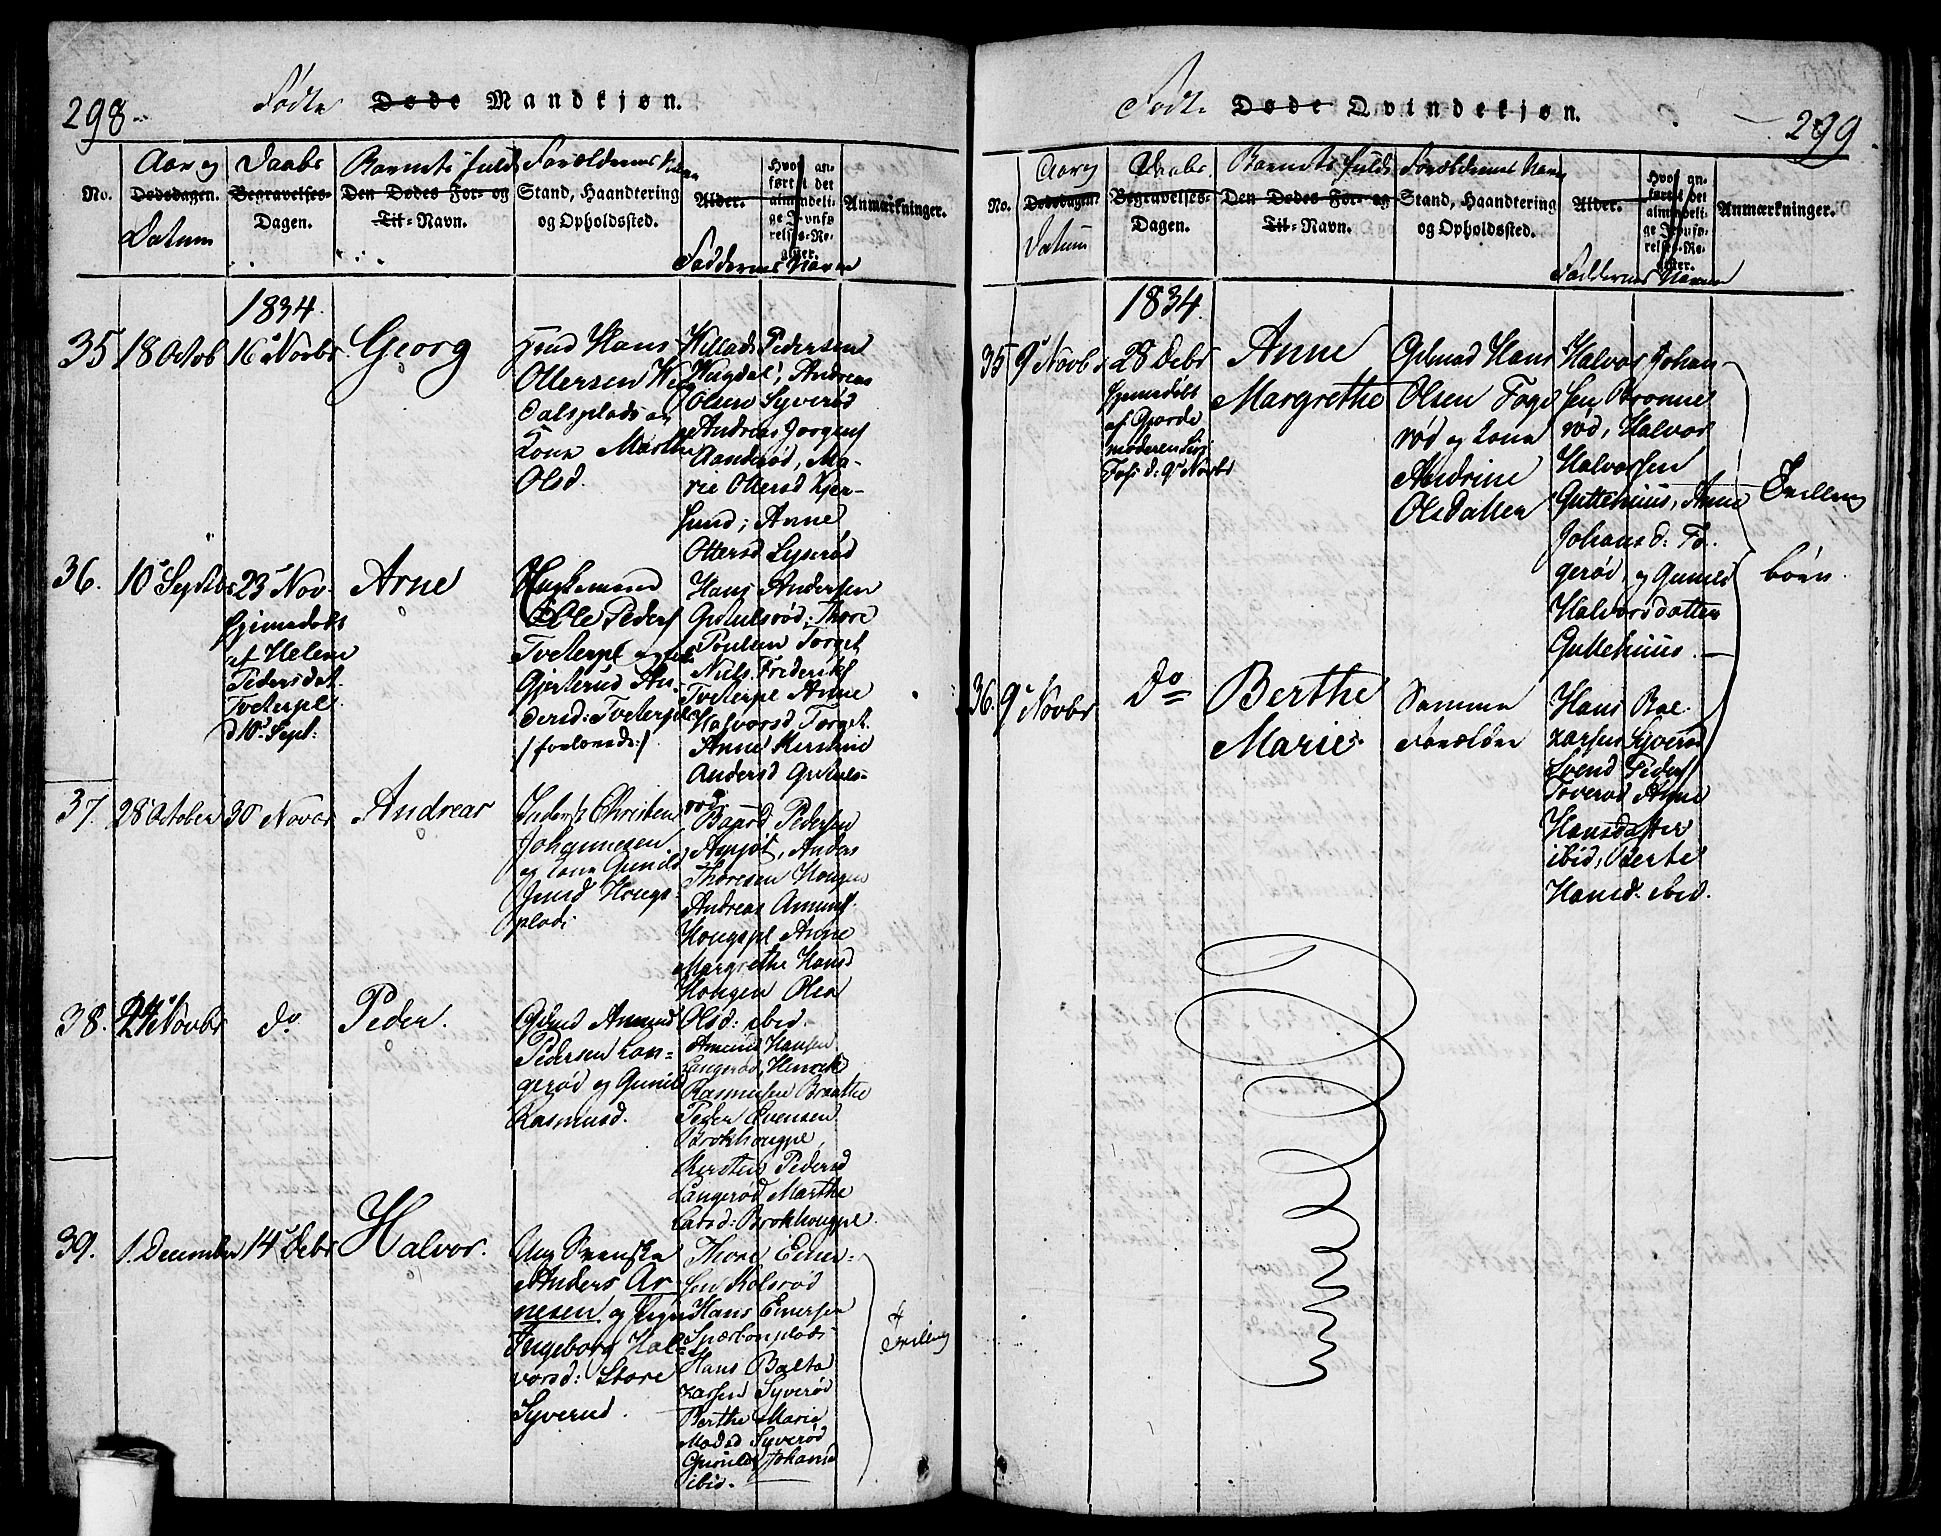 298
Fødte Døde Mandkjøn.
No.
Aar og
Dødsdagen.
Datum
Daabs
Begravelses-
Dagen.
Barnets fulde
Den Dødes For- og
Til-Navn.
Forældrenes Navn
Stand, Haandtering
og Opholdssted.
Alder.
Hvor an-
ført i det
almindeli-
ge Jevnfø-
relses-Re-
gister.
Faddernes Navne
Anmærkninger.
1834.
35 18 Octob 16 Novbr Georg
Hans
Ottersen
dalsplads og
Kone Marthe
Olsd.
Willads Pedersen
Hugdal, Andreas
Olsen Syverød
Andreas Jørgens
Aanderød, Ma-
rie Ottersd Kjer-
sund; Anne
Ottersd Syverød
36. 10 Septbr 23 Nov. Arne
Hjemedøbt
af Helene
Pedersdat.
Tveterpl
d 10 Sept:
Huusmand
Ole Peders
Tveterpl og
Gjerterud An-
dersd: Tveterpl
/: forlovede :/
Hans Andersen
Gutulsrød; Thore
Poulsen Torget
Niels Frederiks
Tveterpl Anne
Halvorsd Torget
Anne Kirstine
Andersd Gutuls-
rød
37. 28 October 30 Novbr Andreas
Inderst Christen
Johannesen
og Kone Gunild
Jensd Hougs-
plads
Baard Pedersen
Anders
Thoresen Hougen
Andreas Amunds
Hougspl Anne
Margrethe Hansd
Hougen Olea
Olsd: ibid.
38. 24 Novbr do Peder.
Gaardmd Amund
Pedersen Lan-
gerød og Gunild
Rasmusd.
Amund Hansen
Langerød, Henrik
Rasmusen Braathe
Peder Evensen
Brokhougpl,
Kersten Pedersd
Langerød Marthe
Larsd: Brokhougpl.
39. 1. December 14 Debr Halvor.
Ung Svenske
Anders Ar-
nesen og Pigen
Ingeborg Hal-
vorsd: Store
Syverud.
Thore Einer-
sen Kolsrød
Hans Einersen
Hans Balta
zarsen Syverød
Berthe Marie
Madsd Syverød
Gunilde Johansd
ibid.
Tvilling
299
Fødte Døde Qvindekjøn.
No.
Aar og
Dødsdagen
Datum
Daabs
Begravelses-
Dagen.
Barnets fulde
Den Dødes For- og
Til-Navn.
Forældrenes Navn
Stand, Haandtering
og Opholdssted.
Alder.
Hvor an-
ført i det
almindeli-
ge Jevnfø-
relses-Re-
gister.
Faddernes Navne
Anmærkninger.
1834.
35 9 Novbr 28 Debr Anne
Margrethe
Hjemedøbt
af Gjorde
moderen
Foss d: 9 Novbr
Gaardmd Hans
Olsen Foge
rød og Kone
Andrine
Olsdatter
Halvor Johan-
sen Bronne
rød, Halvor
Halvorsen
Guttehuus, Anne
Johansd: Fo-
gerød, og Gunild
Halvorsdatter
Guttehuus.
Tvilling
børn.
36. 9 Novbr do Berthe
Marie.
Samme
Forældre
Hans Bal-
zarsen Syverød
Svend Peders
Toverød Anne
Hansdatter
ibid, Berte
Hansd. ibid.